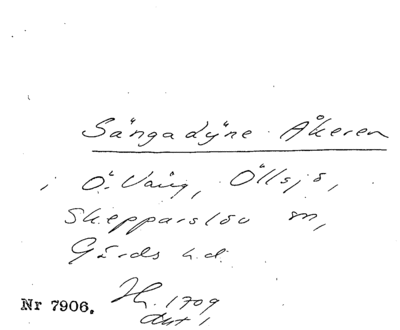 Sängadyne Åkeren
i Ö. Vång, Öllsjö,
Skepparslöv sn,
Gärds hd.
H. 1709
Nr 7906.
akt 1